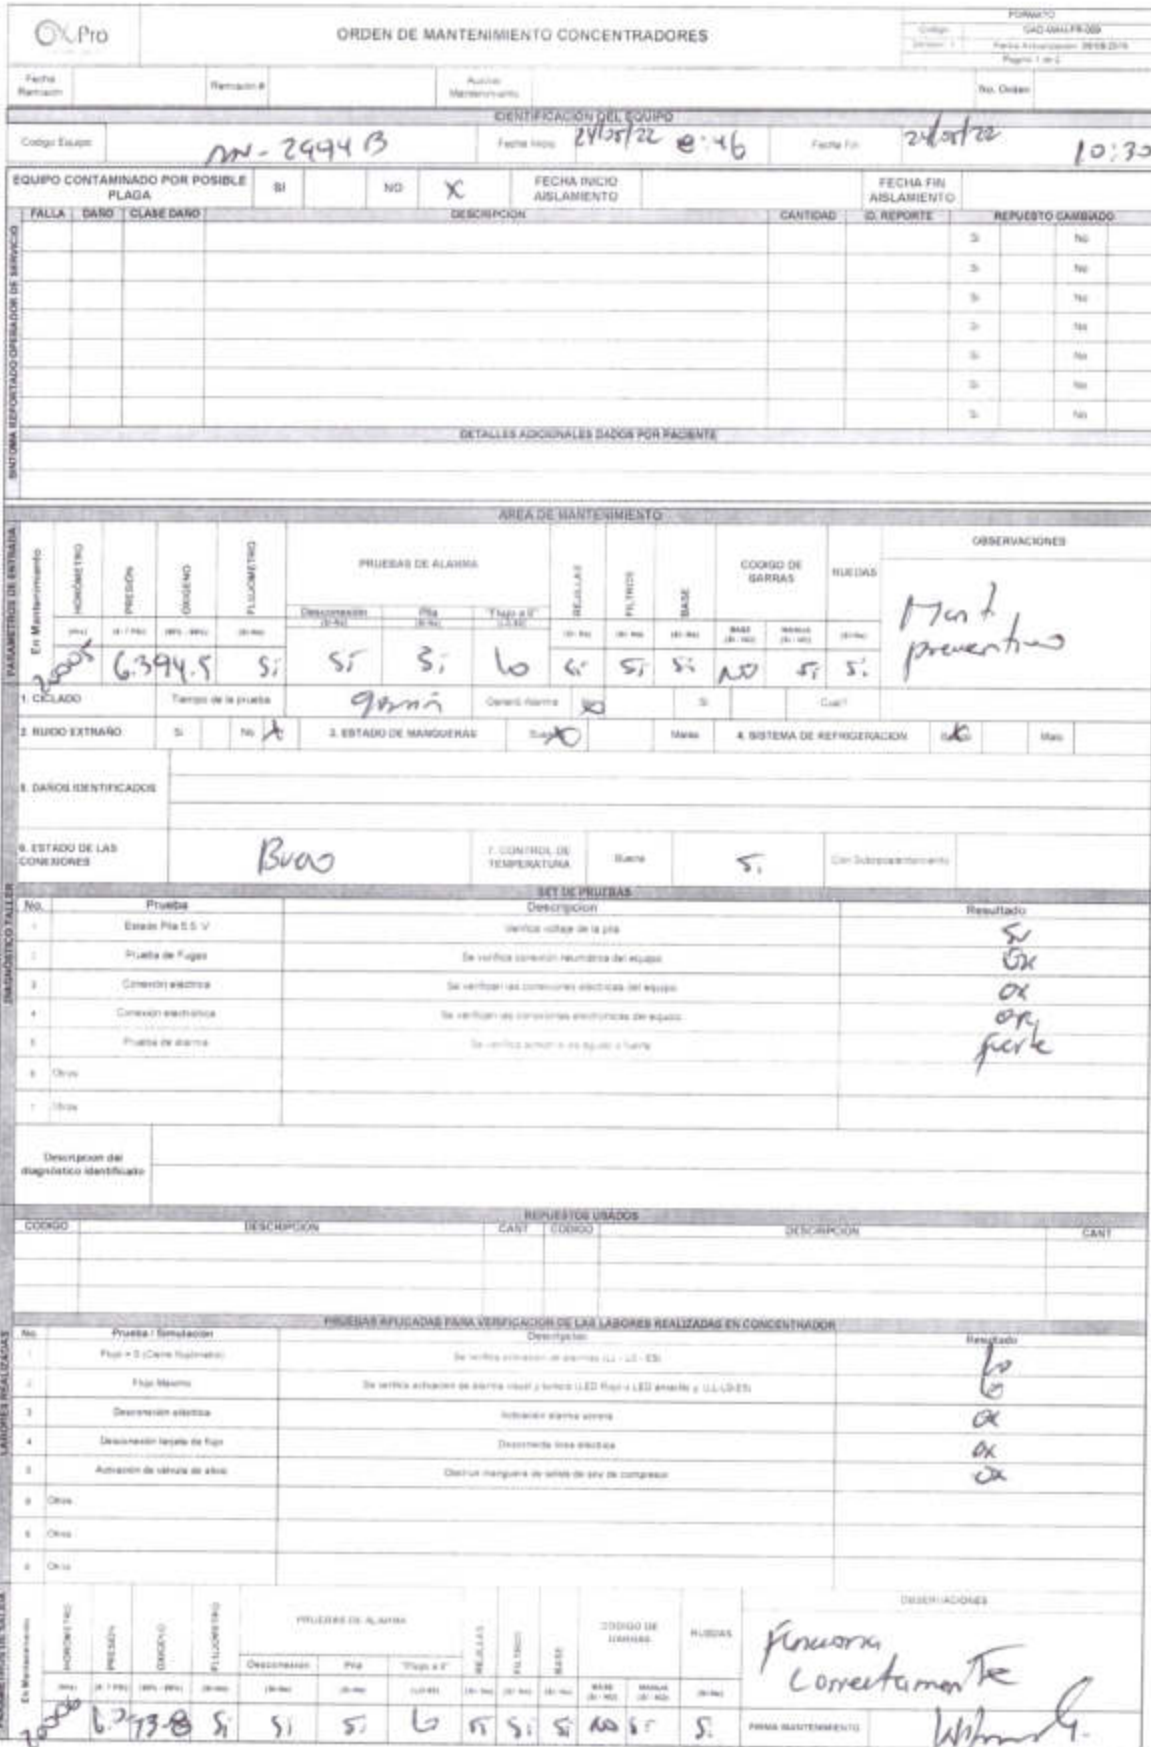 OxPro
ORDEN DE MANTENIMIENTO CONCENTRADORES
FORMATO
Código
GAD-MAN-FR-009
Página 1 de 2
Fecha Remisión
Remisión #
Auxiliar Mantenimiento
No. Orden
IDENTIFICACIÓN DEL EQUIPO
Codigo Equipo
2994 B
Fecha Inicio
24/05/22
Fecha Fin
24/05/22 10:30
EQUIPO CONTAMINADO POR POSIBLE PLAGA
SI
NO X
FECHA INICIO AISLAMIENTO
FECHA FIN AISLAMIENTO
SINTOMA REPORTADO OPERADOR DE SERVICIO
FALLA DAÑO CLASE DAÑO DESCRIPCION CANTIDAD ID. REPORTE REPUESTO CAMBIADO
Si No
Si No
Si No
Si No
Si No
Si No
Si No
DETALLES ADICIONALES DADOS POR PACIENTE
AREA DE MANTENIMIENTO
PARAMETROS DE ENTRADA
En Mantenimiento
HORÓMETRO
PRESIÓN
OXIGENO
FLUJOMETRO
PRUEBAS DE ALARMA
Desconexión
Pila
"Flujo a 0"
REJILLAS
FILTROS
BASE
CODIGO DE BARRAS
RUEDAS
OBSERVACIONES
20005 6.3 94.5 Si Si Si Lo Si Si Si NO Si Si
Mant preventivo
1. CICLADO
Tiempo de la prueba
Generó Alarma
Si
Cual?
2. RUIDO EXTRAÑO
Si
No X
3. ESTADO DE MANGUERAS
X
Malas
4. SISTEMA DE REFRIGERACION
X
Malo
5. DAÑOS IDENTIFICADOS
6. ESTADO DE LAS CONEXIONES
Bueno
7. CONTROL DE TEMPERATURA
Buena
Si
Con Sobrecalentamiento
DIAGNÓSTICO TALLER
SET DE PRUEBAS
No. Prueba Descripcion Resultado
1 Estado Pila 5.5 V Verifica voltaje de la pila
2 Prueba de Fugas Se verifica conexión neumática del equipo OK
3 Conexión eléctrica Se verifican las conexiones eléctricas del equipo OK
4 Conexión electrónica Se verifican las conexiones electrónicas del equipo OK
5 Prueba de alarma fuerte
6 Otros
7 Otros
Descripcion del diagnóstico identificado
REPUESTOS USADOS
CODIGO DESCRIPCIÓN CANT CODIGO DESCRIPCION CANT
LABORES REALIZADAS
PRUEBAS APLICADAS PARA VERIFICACION DE LAS LABORES REALIZADAS EN CONCENTRADOR
No. Prueba / Simulacion Descripcion Resultado
1 Flujo = 0 (Cierre flujómetro) Lo
2 Flujo Máximo Lo
3 Desconexión eléctrica Activación alarma sonora OK
4 Desconexión tarjeta de flujo Desconecta línea eléctrica OK
5 Activación de válvula de alivio OK
Otros
Otros
Otros
PARAMETROS DE SALIDA
En Mantenimiento
HOROMETRO
PRESIÓN
OXIGENO
FLUJOMETRO
PRUEBAS DE ALARMA
Desconexion
Pila
"Flujo a 0"
REJILLAS
FILTROS
BASE
CODIGO DE BARRAS
RUEDAS
OBSERVACIONES
20006 Si Si Si Lo Si Si Si NO Si Si
Funciona
Correctamente
FIRMA MANTENIMIENTO